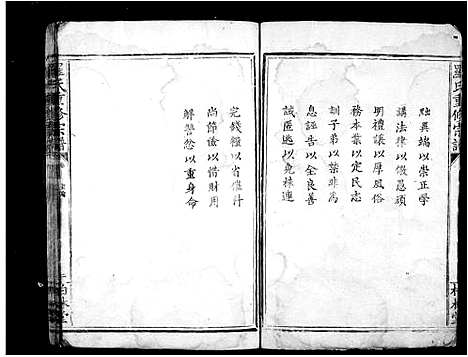 羅氏重修宗譜
黜異端以崇正學
講法律以儆愚頑
明禮讓以厚風俗
務本業以定民志
訓子弟以禁非為
息誣告以全良善
誡匿逃以免株連
完錢糧以省催科
尚節儉以惜財用
解讐忿以重身命
羅氏重修宗譜